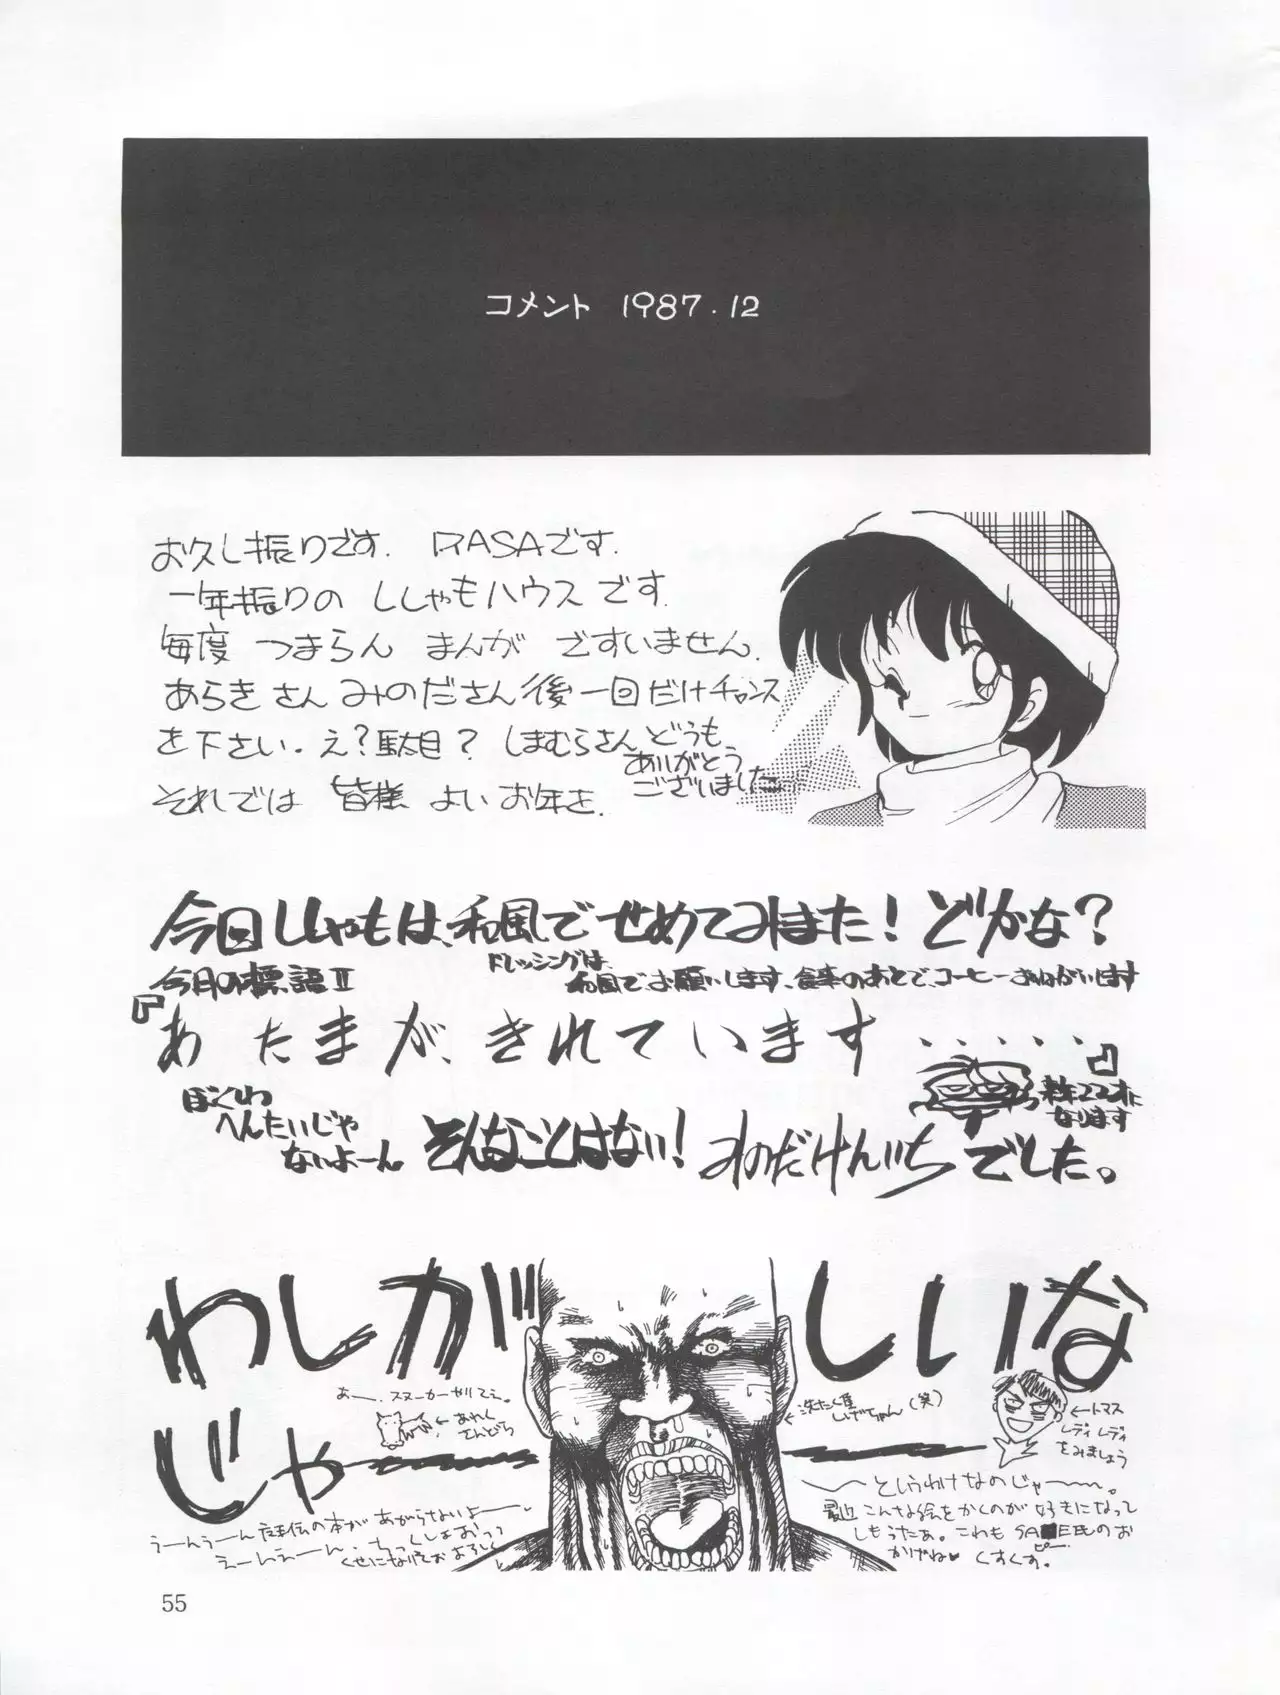 コメント 1987.12
お久し振りです. RASAです.
一年振りの ししゃもハウス です.
毎度 つまらん まんが ですいません.
あらきさん みのださん後一回だけチャンス
を下さい. え?駄目? しまむらさんどうも
ありがとう
ございました
それでは 皆様 よいお年を.
今回ししゃもは、和風でせめてみました! どかな?
今月の標語II
ドレッシングは、
和風で、お願いします、食事のあとで、コーヒーおねがいします
『あたまが、きれています ・・・・・・』
来年22才に
なります
ぼくしわ
へんたいじゃ
ないよーん。
そんなことはない! みのだけんいち でした。
わしが しいな
じゃ
あー、スヌーカーやりてえ。
←あれく
さんどら
←トマス
レディ レディ
をみましょう
〜というわけなのじゃ〜。
最近 こんな絵をかくのが 好きになって
しもうたあ。これも SA■E氏のお
ピー
かげね♥ くすくす。
55